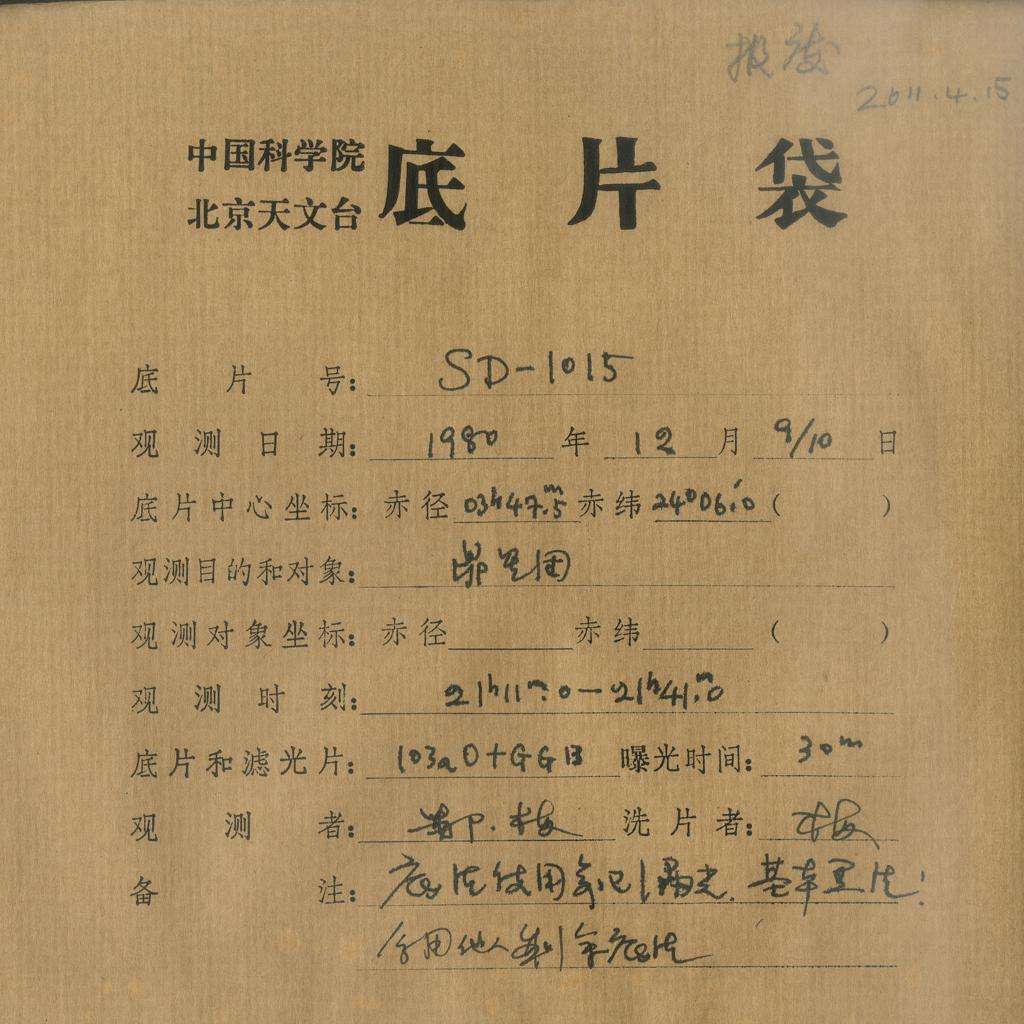 报废
2011.4.15
中国科学院
北京天文台 底片袋
底片号: SD-1015
观测日期: 1980 年 12 月 9/10 日
底片中心坐标: 赤径 03h47m.5 赤纬 24°06'.0 ( )
观测目的和对象: 昴星团
观测对象坐标: 赤径 赤纬 ( )
观测时刻: 21h11m.0—21h41m.0
底片和滤光片: 103aO+GG13 曝光时间: 30m
观测者: 洗片者:
备注: 底片使用前已曝光. 基本黑片!
用他人剩余底片